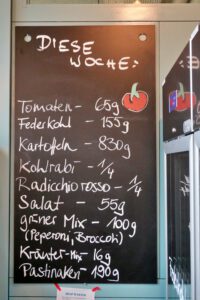 DIESE
WOCHE:
Tomaten - 65g
Federkohl - 155g
Kartoffeln - 830g
Kohlrabi - 1/4
Radicchio rosso - 1/4
Salat - 55g
grüner Mix - 100g
(Peperoni, Broccoli)
Kräuter-Mix - 16g
Pastinaken 190g